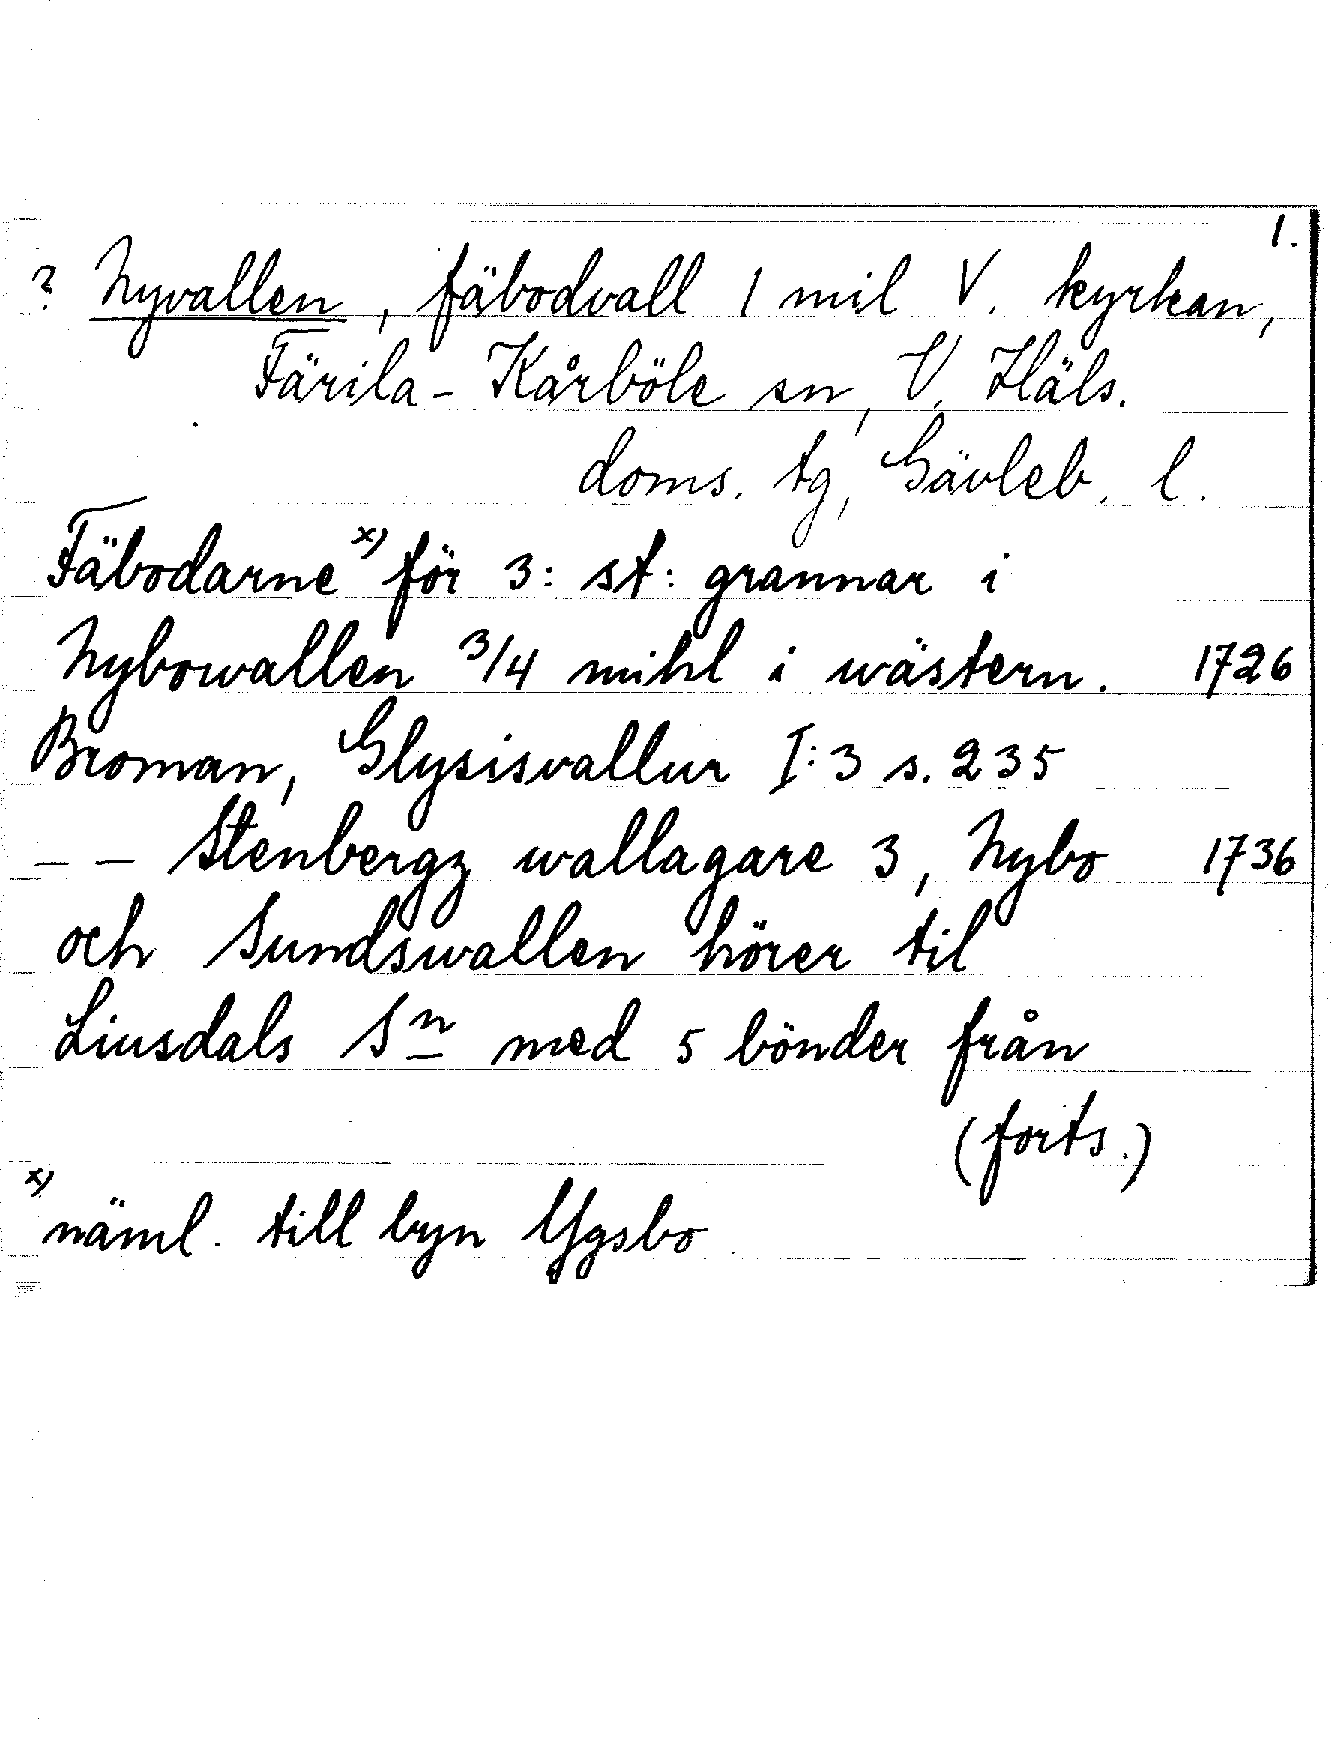 1.
? Nyvallen, fäbodvall 1 mil V. kyrkan,
Färila-Kårböle sn, V. Häls.
doms. tg, Gävleb. l.
Fäbodarne x) för 3: st: grannar i
Nybowallen 3/4 mihl i wästern. 1726
Broman, Glysisvallur I:3 s. 235
– – Stenbergz wallagare 3, Nybo 1736
och Sundswallen hörer til
Liusdals Sn med 5 bönder från
(forts.)
x) näml. till byn Ygsbo